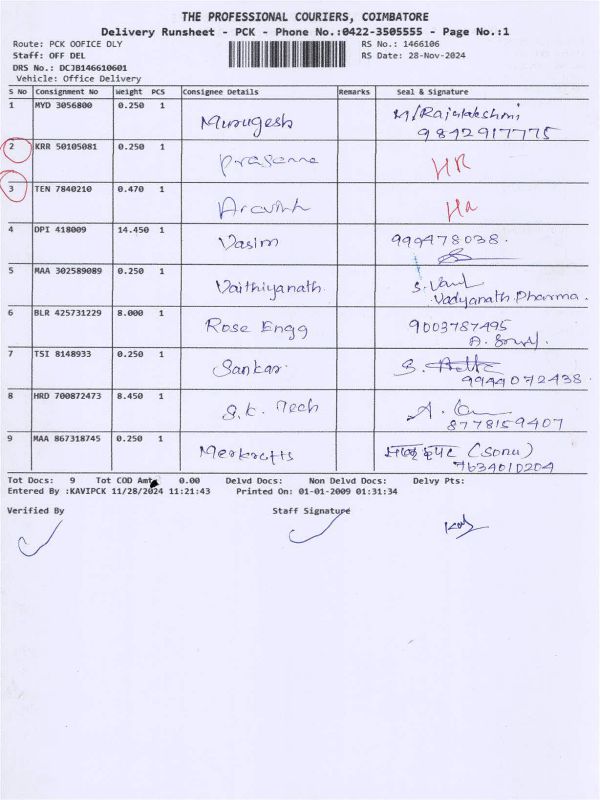 THE PROFESSIONAL COURIERS, COIMBATORE
Delivery Runsheet - PCK - Phone No.:0422-3505555 - Page No.:1
Route: PCK OOFICE DLY RS No.: 1466106
Staff: OFF DEL RS Date: 28-Nov-2024
DRS No.: DCJB146610601
Vehicle: Office Delivery
S No Consignment No Weight PCS Consignee Details Remarks Seal & Signature
1 MYD 3056800 0.250 1 Murugesh M/Rajalakshmi
9842917775
2 KRR 50105081 0.250 1 Prasanna HR
3 TEN 7840210 0.470 1 Aravinth HR
4 DPI 418009 14.450 1 Vasim 999478038.
5 MAA 302589089 0.250 1 Vaithiyanath. S.
Vadyanath Pharma.
6 BLR 425731229 8.000 1 Rose Engg 9003787495
A.
7 TSI 8148933 0.250 1 Sankar. S.
9944072438.
8 HRD 700872473 8.450 1 S.K. Tech A.
8778159407
9 MAA 867318745 0.250 1 Merkrafts (Sonu)
7634010204
Tot Docs: 9 Tot COD Amt: 0.00 Delvd Docs: Non Delvd Docs: Delvy Pts:
Entered By :KAVIPCK 11/28/2024 11:21:43 Printed On: 01-01-2009 01:31:34
Verified By Staff Signature